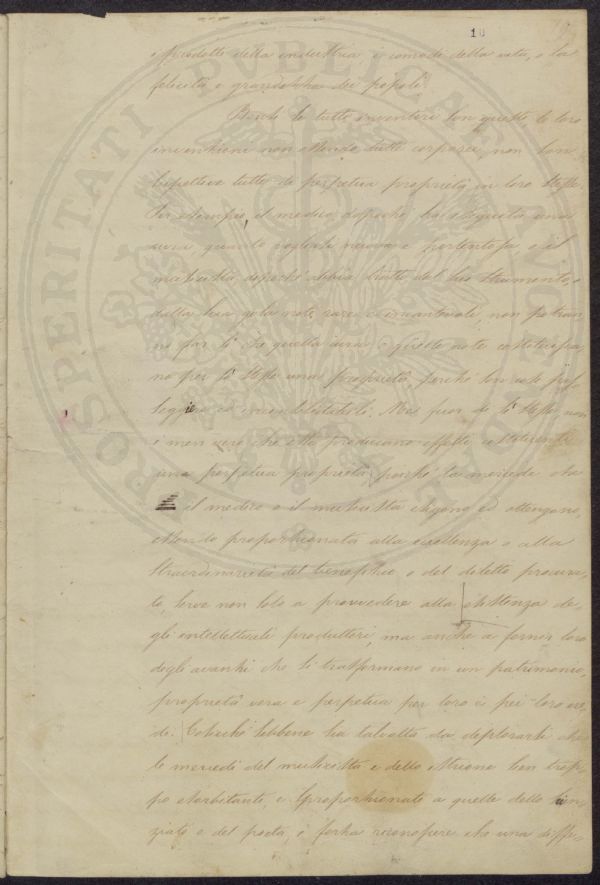 10
i prodotti della industria, i comodi della vita, e la
felicità e grandezza dei popoli.
Benché le tutte inventori con questo le loro
invenzioni non essendo tutte corporee, non son
tutte di perpetua proprietà in loro stesse.
Per esempio, il medico, dopoché ha eseguita una
cura quanto vogliasi nuova e portentosa, e il
musicista, dopoché abbia tratte dal suo strumento, o
dalla sua gola note rare e incantevoli, non potran-
no far sì che quella cura e quelle note costituisca-
no per sé stesse una proprietà, perché son cose pas-
seggiere ed incorporabili. Ma pur di sé stesse non
è men vero che esse producano effetti costituenti
una perpetua proprietà; perché la mercede che
il medico e il musicista esigono ed ottengono,
essendo proporzionata alla eccellenza o alla
straordinarietà del beneficio o del diletto procura-
to, serve non solo a provvedere alla esistenza de-
gli intellettuali produttori, ma anche a fornir loro
degli avanzi che si trasformano in un patrimonio,
proprietà vera e perpetua per loro e pei loro ere-
di. Cosicché sebbene ha talvolta da deplorarsi che
le mercedi del musicista e dello istrione sien trop-
po esorbitanti, e sproporzionate a quelle dello scien-
ziato e del poeta, è forza riconoscere che una diffe-
PROSPERITATI PVBLICAE AVGENDAE